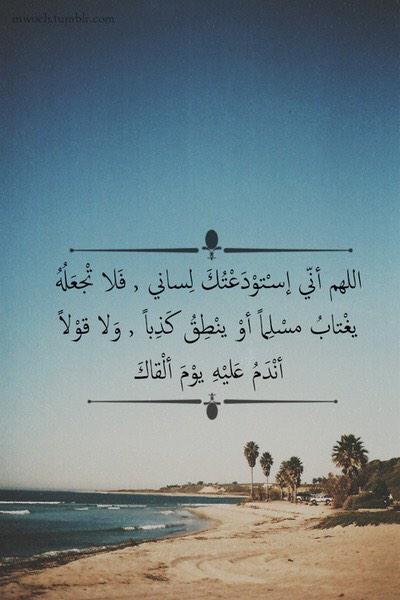 mwoch.tumblr.com
اللهم أنّي إسْتوْدَعْتُكَ لِساني , فَلا تْجعَلُهُ
يغْتابُ مسْلِماً أوْ ينْطِقُ كَذِباً , وَلا قوْلاً
أنْدَمُ عَليْهِ يوْمَ ألْقاكَ